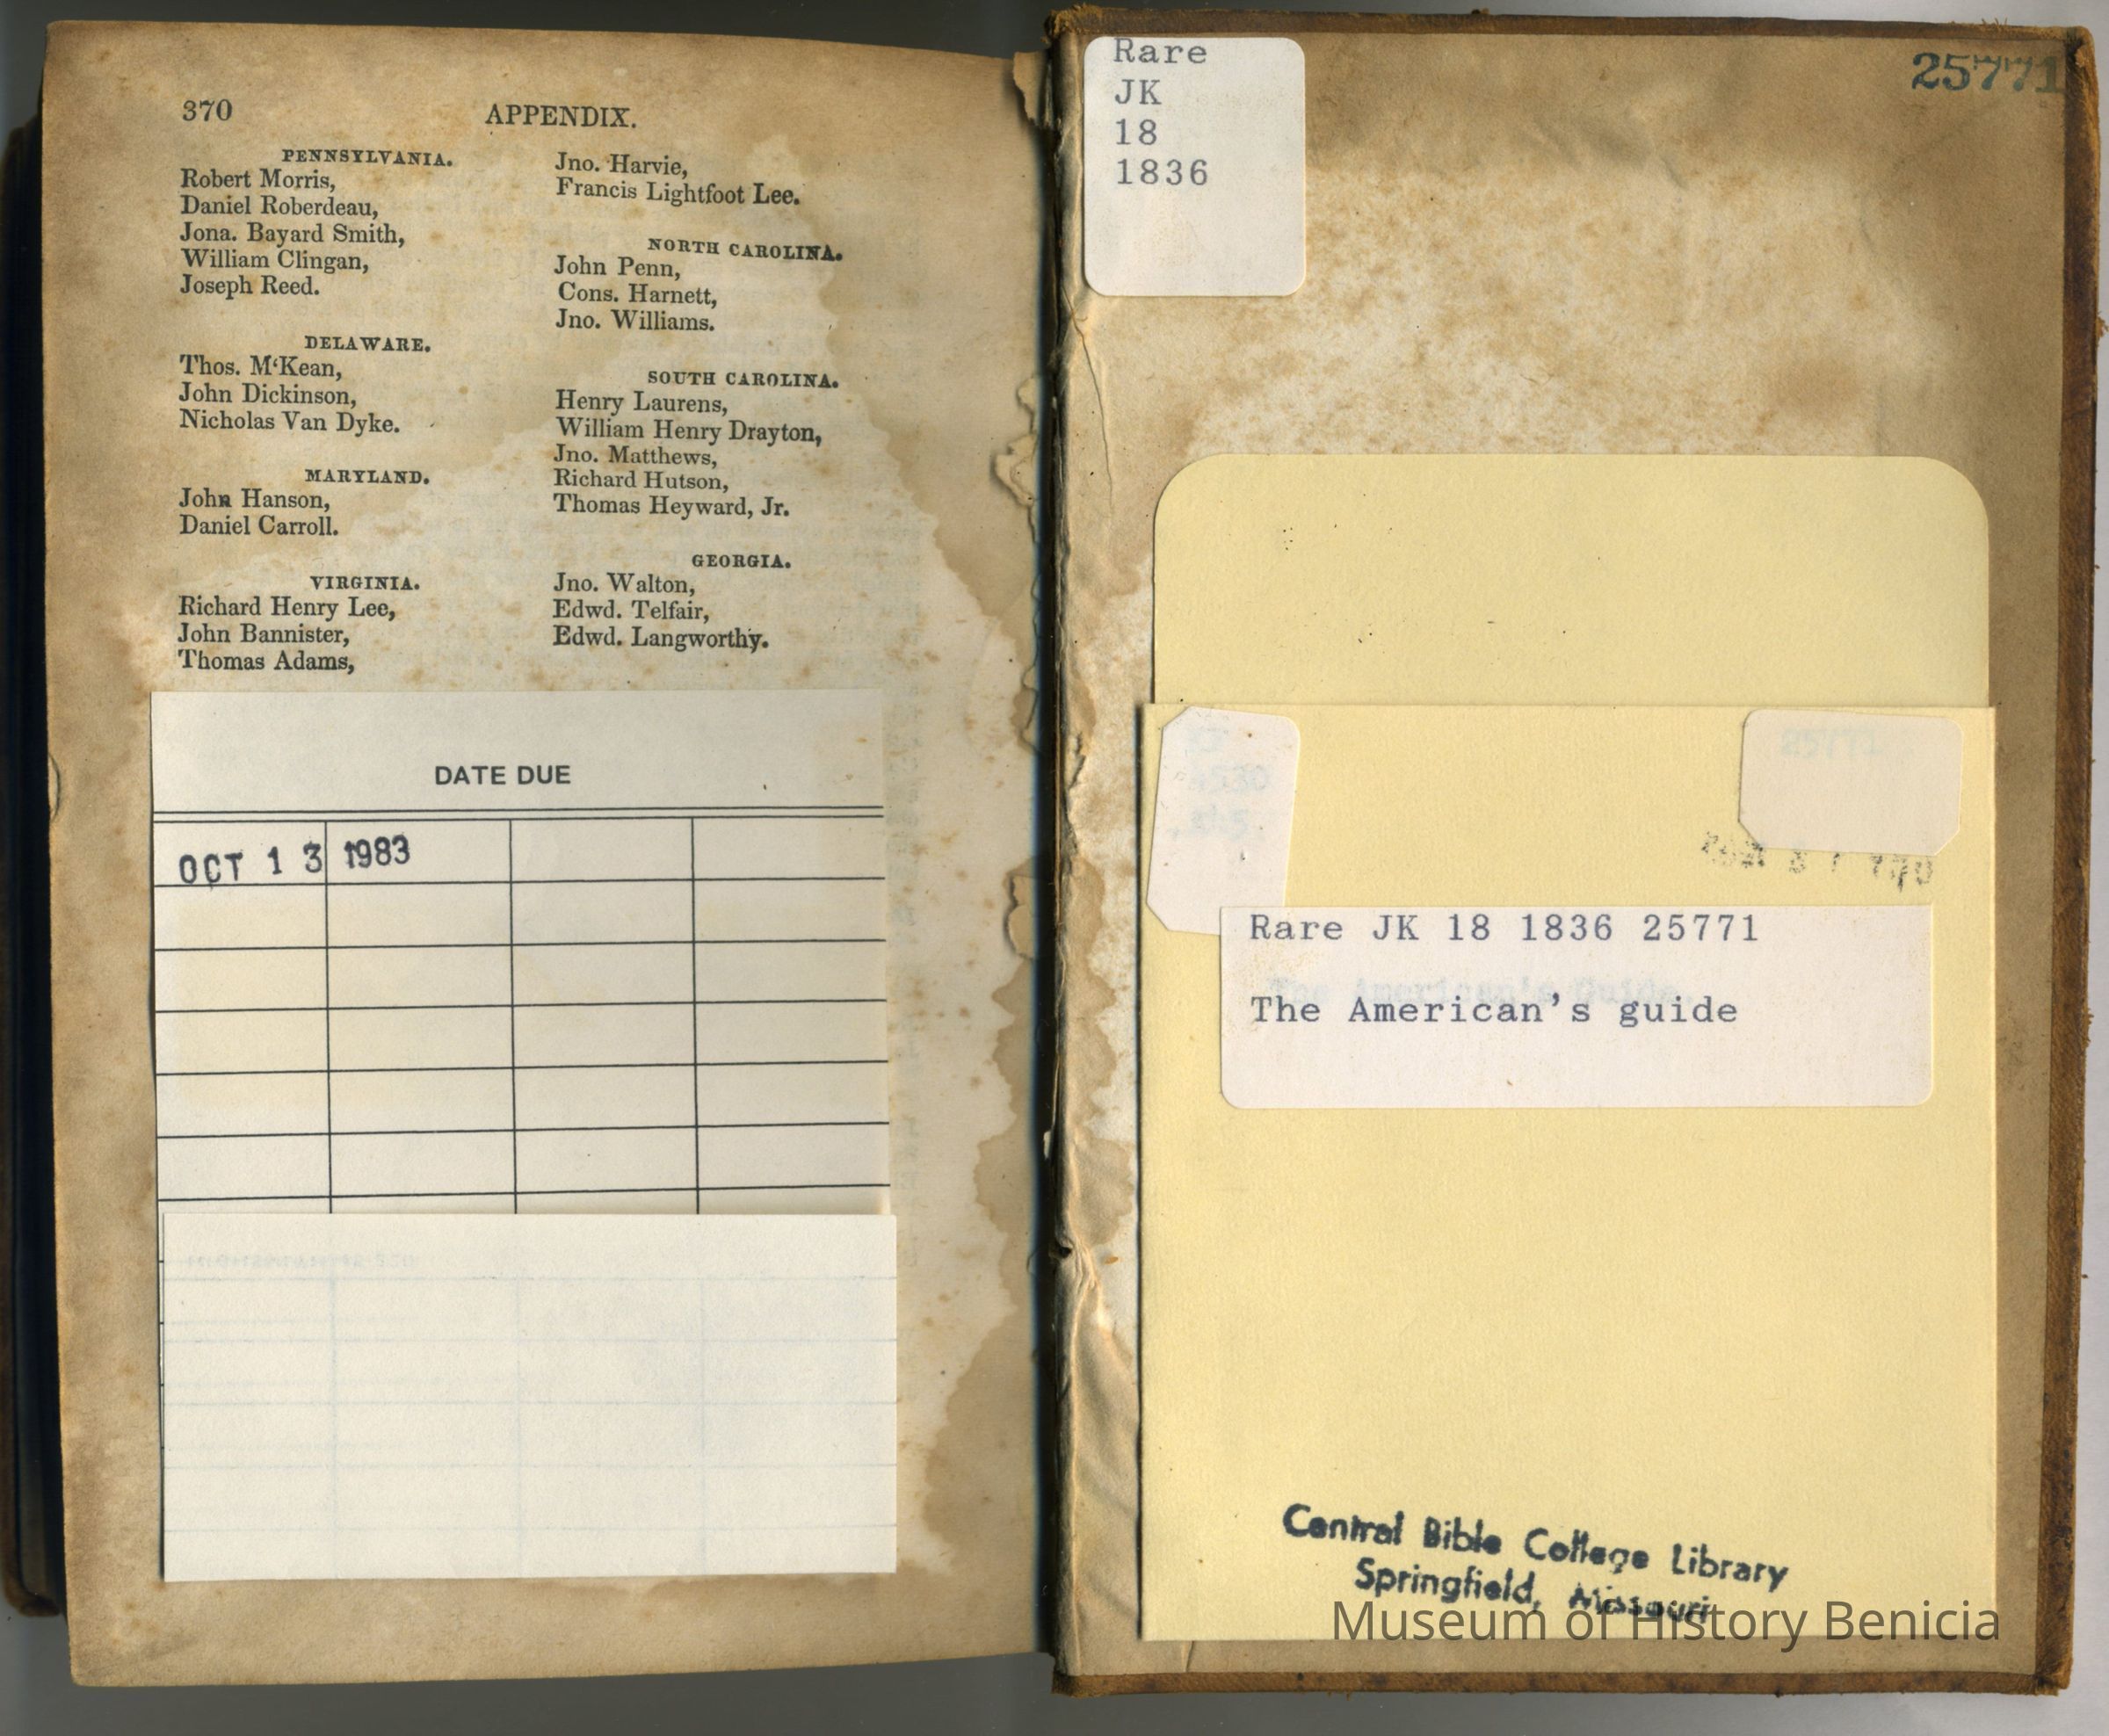 370 APPENDIX.
PENNSYLVANIA.
Robert Morris,
Daniel Roberdeau,
Jona. Bayard Smith,
William Clingan,
Joseph Reed.
DELAWARE.
Thos. M‘Kean,
John Dickinson,
Nicholas Van Dyke.
MARYLAND.
John Hanson,
Daniel Carroll.
VIRGINIA.
Richard Henry Lee,
John Bannister,
Thomas Adams,
Jno. Harvie,
Francis Lightfoot Lee.
NORTH CAROLINA.
John Penn,
Cons. Harnett,
Jno. Williams.
SOUTH CAROLINA.
Henry Laurens,
William Henry Drayton,
Jno. Matthews,
Richard Hutson,
Thomas Heyward, Jr.
GEORGIA.
Jno. Walton,
Edwd. Telfair,
Edwd. Langworthy.
DATE DUE
OCT 13 1983
Rare
JK
18
1836
25771
25771
Rare JK 18 1836 25771
The American's Guide
The American's guide
Central Bible College Library
Springfield, Missouri
Museum of History Benicia